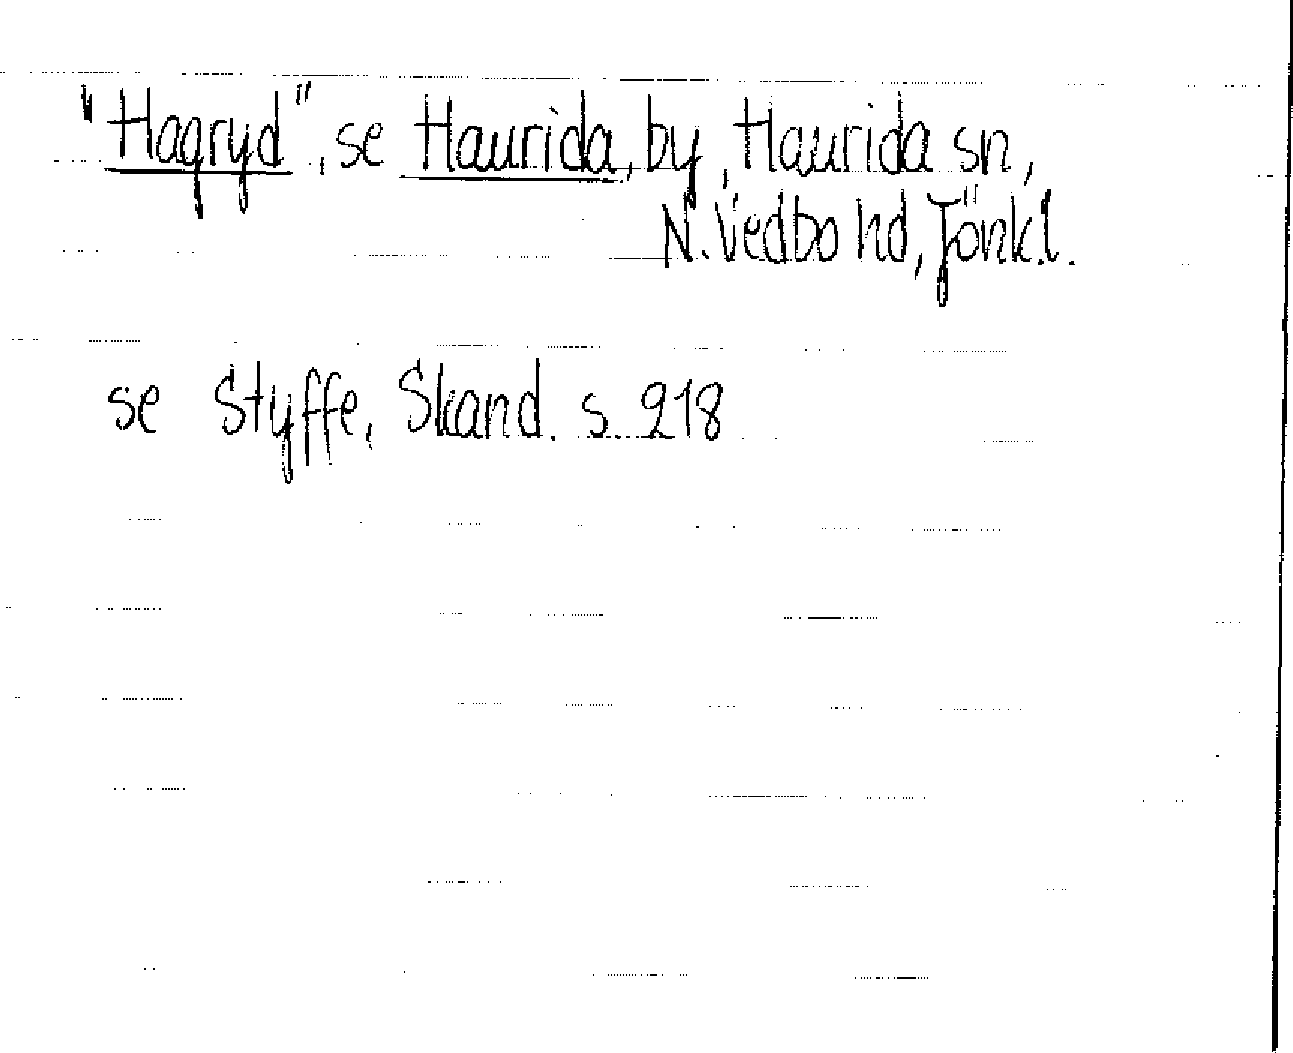 "Hagryd", se Haurida, by, Haurida sn,
N. Vedbo hd, Jönk.l.
se Styffe, Skand. s. 218